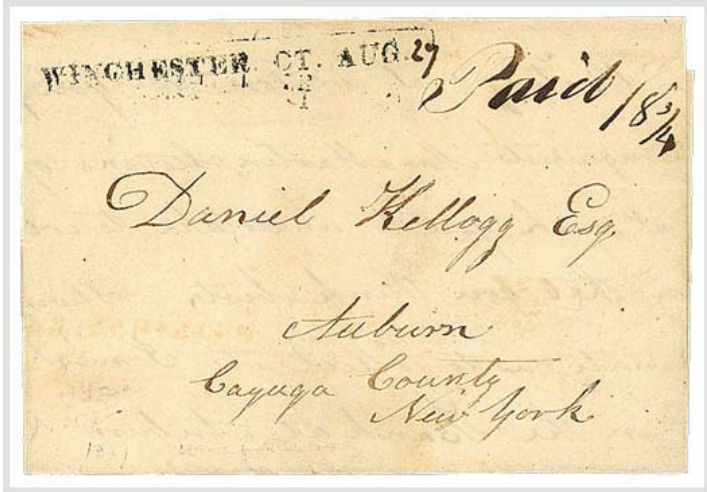 WINCHESTER CT. AUG. 27
Paid 18 3/4
Daniel Kellogg Esq.
Auburn
Cayuga County
New York